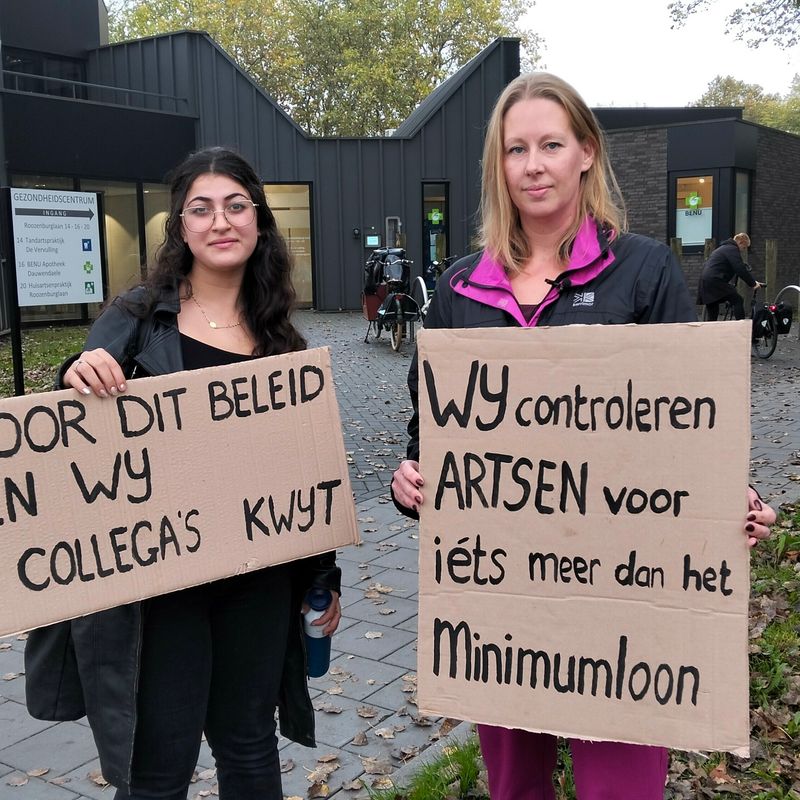 GEZONDHEIDSCENTRUM
INGANG
Roozenburglaan 14 - 16 - 20
14 Tandartspraktijk
De Vervulling
16 BENU Apotheek
Dauwendaele
20 Huisartsenpraktijk
Roozenburglaan
OOR DIT BELEID
EN WY
COLLEGA'S KWYT
WY controleren
ARTSEN voor
iéts meer dan het
Minimumloon
BENU